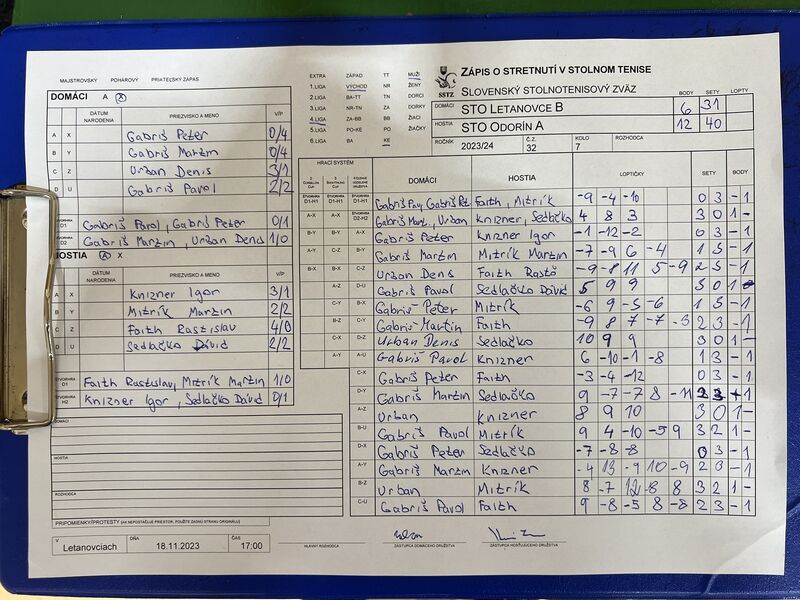 MAJSTROVSKÝ POHÁROVÝ PRIATEĽSKÝ ZÁPAS
DOMÁCI A X
DÁTUM NARODENIA PRIEZVISKO A MENO V/P
A X Gabriš Peter 0/4
B Y Gabriš Martin 0/4
C Z Urban Denis 3/1
D U Gabriš Pavol 2/2
ŠTVORHRA D1 Gabriš Pavol, Gabriš Peter 0/1
ŠTVORHRA D2 Gabriš Martin, Urban Denis 1/0
HOSTIA A X
DÁTUM NARODENIA PRIEZVISKO A MENO V/P
A X Knizner Igor 3/1
B Y Mitrík Martin 2/2
C Z Faith Rastislav 4/0
D U Sedlačko Dávid 2/2
ŠTVORHRA D1 Faith Rastislav, Mitrík Martin 1/0
ŠTVORHRA H2 Knizner Igor, Sedlačko Dávid 0/1
DOMÁCI
HOSTIA
ROZHODCA
PRIPOMIENKY/PROTESTY (AK NEPOSTAČUJE PRIESTOR, POUŽITE ZADNÚ STRANU ORIGINÁLU)
V Letanovciach DŇA 18.11.2023 ČAS 17:00
EXTRA ZÁPAD TT MUŽI
1.LIGA VÝCHOD NR ŽENY
2.LIGA BA-TT TN DORCI
3.LIGA NR-TN ZA DORKY
4.LIGA ZA-BB BB ŽIACI
5.LIGA PO-KE PO ŽIAČKY
6.LIGA BA KE
SSTZ
ZÁPIS O STRETNUTÍ V STOLNOM TENISE
SLOVENSKÝ STOLNOTENISOVÝ ZVÄZ
BODY SETY LOPTY
DOMÁCI STO LETANOVCE B 6 31
HOSTIA STO ODORÍN A 12 40
ROČNÍK 2023/24 Č.Z. 32 KOLO 7 ROZHODCA
HRACÍ SYSTÉM DOMÁCI HOSTIA LOPTIČKY SETY BODY
ŠTVORHRA D1-H1 ŠTVORHRA D1-H1 ŠTVORHRA D1-H1 Gabriš Pav, Gabriš Pet Faith, Mitrík -9 -4 -10 0 3 -1
A-X A-X ŠTVORHRA D2-H2 Gabriš Mart., Urban Knizner, Sedlačko 4 8 3 3 0 1-
B-Y B-Y A-X Gabriš Peter Knizner Igor -1 -12 -2 0 3 -1
A-Y C-Z B-Y Gabriš Martin Mitrík Martin -7 -9 6 -4 1 3 -1
B-X B-X C-Z Urban Denis Faith Rasťo -9 -8 11 5 -9 2 3 -1
A-Z D-U Gabriš Pavol Sedlačko Dávid 5 9 9 3 0 1-
C-Y B-X Gabriš Peter Mitrík -6 9 -5 -6 1 3 -1
B-Z C-Y Gabriš Martin Faith -9 8 7 -7 -3 2 3 -1
C-X D-Z Urban Denis Sedlačko 10 9 9 3 0 1-
A-Y A-U Gabriš Pavol Knizner 6 -10 -1 -8 1 3 -1
C-X Gabriš Peter Faith -3 -4 -12 0 3 -1
D-Y Gabriš Martin Sedlačko 9 -7 -7 8 -11 2 3 -1
A-Z Urban Knizner 8 9 10 3 0 1-
B-U Gabriš Pavol Mitrík 9 4 -10 -5 9 3 2 1-
D-X Gabriš Peter Sedlačko -7 -8 -8 0 3 -1
A-Y Gabriš Martin Knizner -4 13 -9 10 -9 2 3 -1
B-Z Urban Mitrík 8 -7 12 -8 8 3 2 1-
C-U Gabriš Pavol Faith 9 -8 -5 8 -8 2 3 -1
HLAVNÝ ROZHODCA ZÁSTUPCA DOMÁCEHO DRUŽSTVA ZÁSTUPCA HOSŤUJÚCEHO DRUŽSTVA